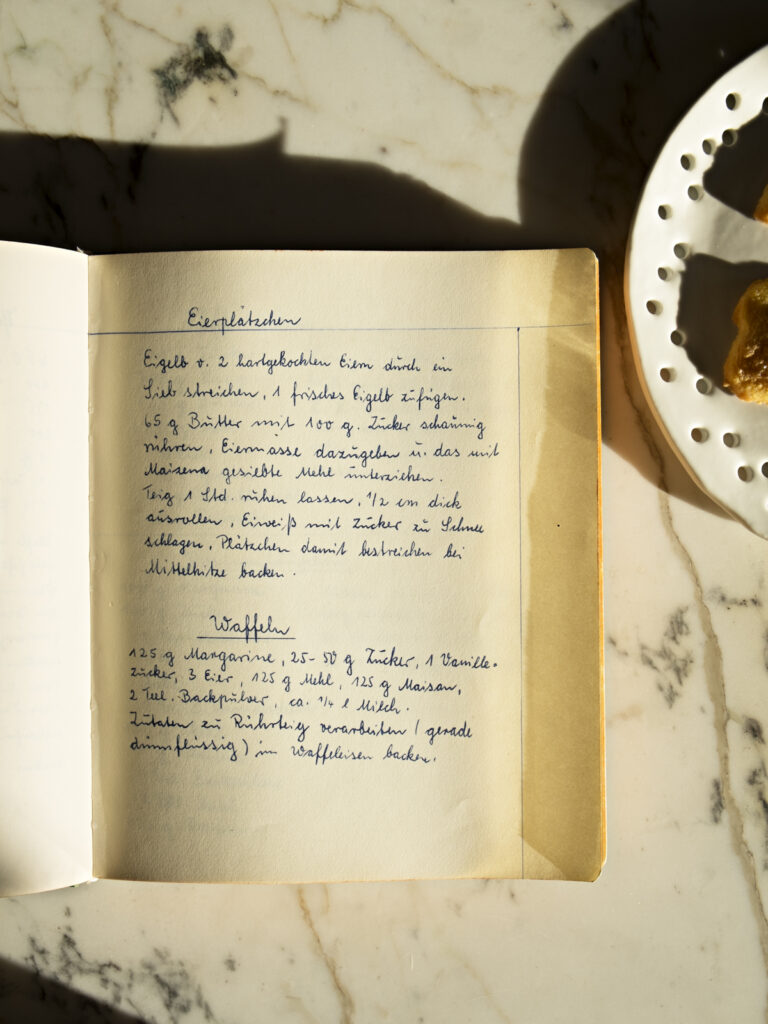 Eierplätzchen
Eigelb v. 2 hartgekochten Eiern durch ein
Sieb streichen, 1 frisches Eigelb zufügen.
65 g Butter mit 100 g. Zucker schaumig
rühren, Eiermasse dazugeben u. das mit
Maizena gesiebte Mehl unterziehen.
Teig 1 Std. ruhen lassen, 1/2 cm dick
ausrollen, Eiweiß mit Zucker zu Schnee
schlagen, Plätzchen damit bestreichen bei
Mittelhitze backen.
Waffeln
125 g Margarine, 25-50 g Zucker, 1 Vanille-
zucker, 3 Eier, 125 g Mehl, 125 g Maisan,
2 Teel. Backpulver, ca. 1/4 l Milch.
Zutaten zu Rührteig verarbeiten (gerade
dünnflüssig) im Waffeleisen backen.